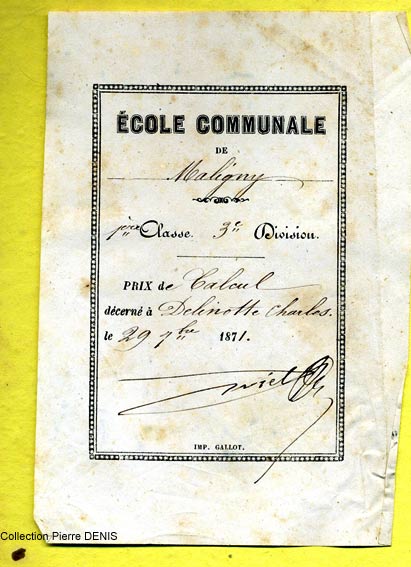 ÉCOLE COMMUNALE
DE
Maligny
1ère Classe. 3e Division.
PRIX de Calcul
décerné à Delinotte Charles.
le 29 7bre 1871.
IMP. GALLOT.
Collection Pierre DENIS